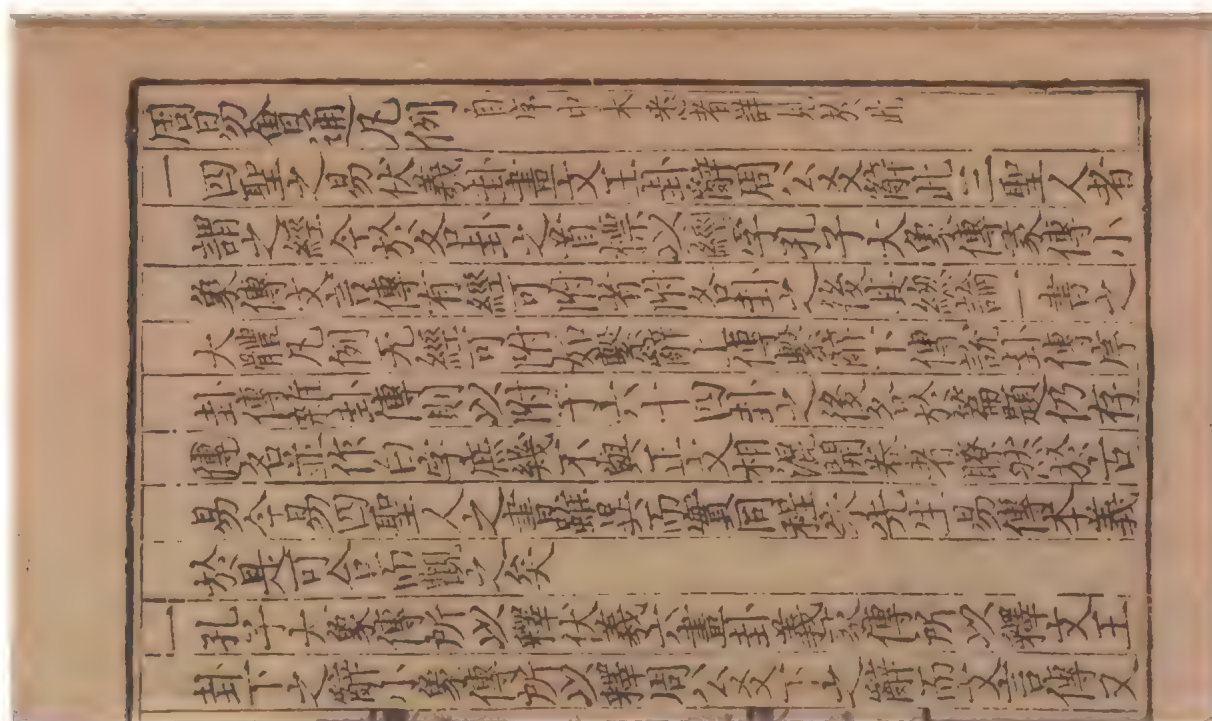 周易會通凡例 自序中未悉者詳見於此
一四聖之易伏羲卦畫文王卦辭周公爻辭此三聖人者
謂之經今於各卦之首標以經字孔子大象傳彖傳小
象傳文言傳有經可附者附各卦之後其總論一書之
大體凡例无經可附如繫辭上傳繫辭下傳說卦傳序
卦傳雜卦傳則以附于六十四卦之後各於篇題仍存
傳名並作白字庶幾不與正文相混開卷者瞭然於古
易今易四聖人之書雖異而實同程朱先生易傳本義
於是可合而觀之矣
一孔子大象傳所以釋伏羲六畫卦義彖傳所以釋文王
卦下之辭小象傳所以釋周公爻下之辭而文言傳又